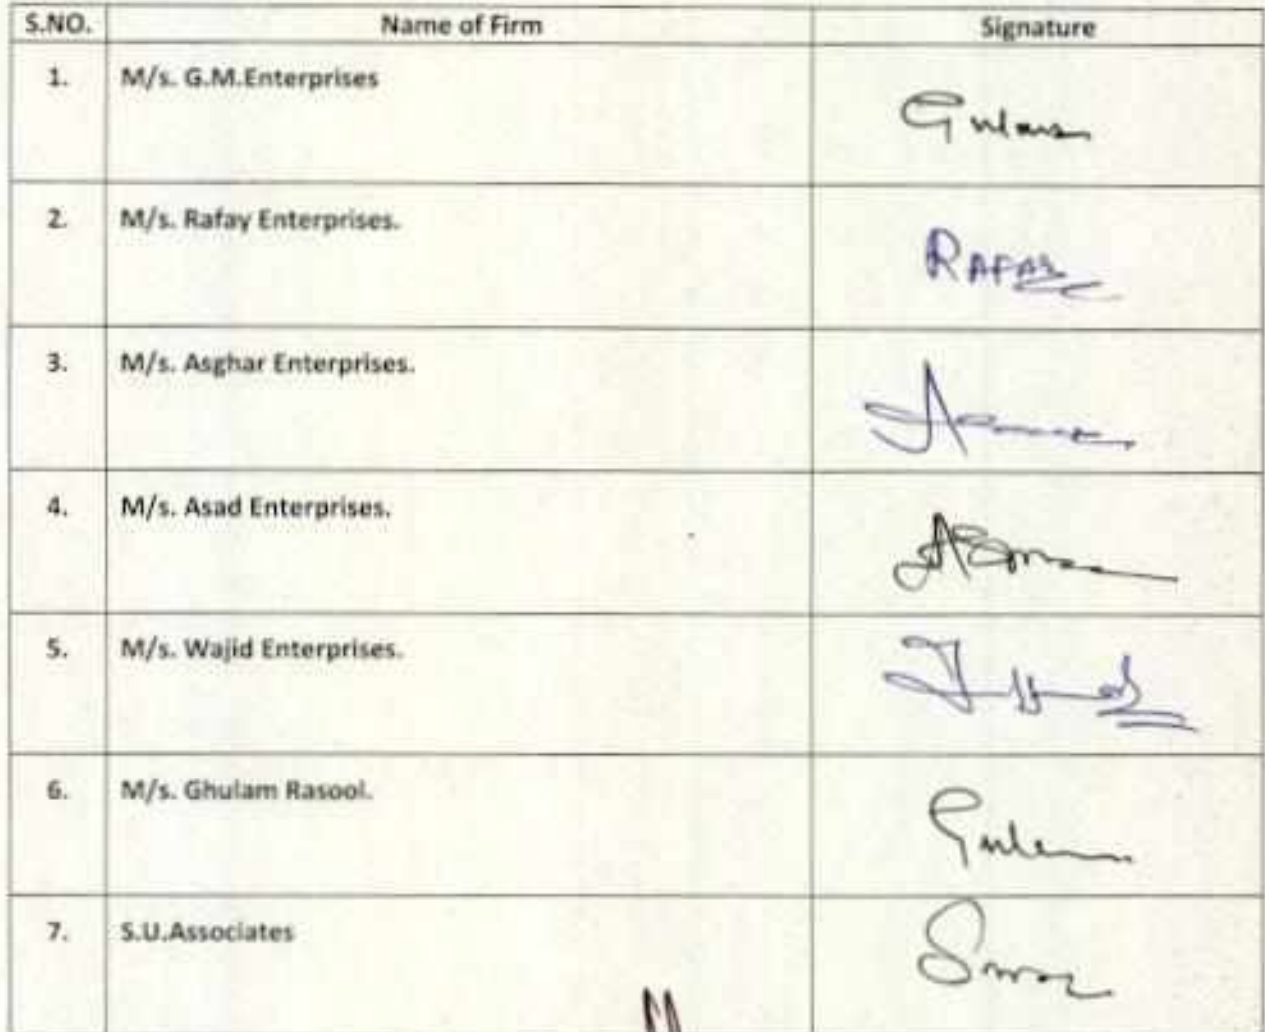 S.NO. Name of Firm Signature
1. M/s. G.M.Enterprises
2. M/s. Rafay Enterprises.
RAFAY
3. M/s. Asghar Enterprises.
4. M/s. Asad Enterprises.
5. M/s. Wajid Enterprises.
6. M/s. Ghulam Rasool.
7. S.U.Associates